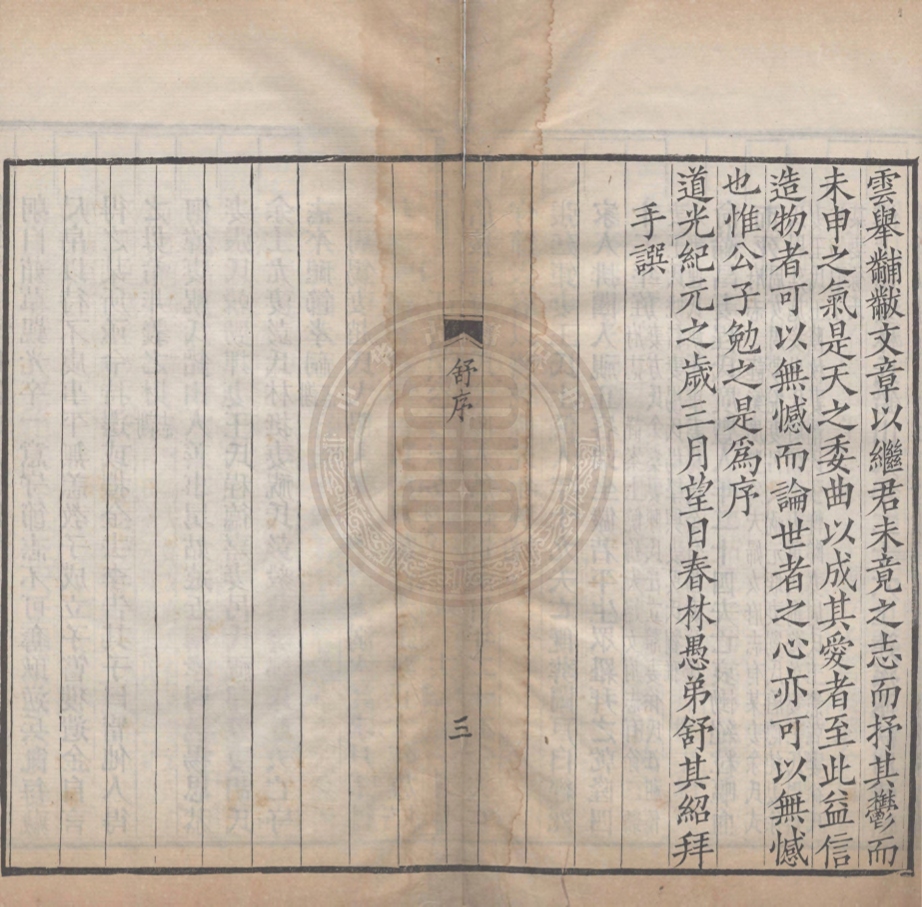 雲舉黼黻文章以繼君未竟之志而抒其鬱而
未申之氣是天之委曲以成其愛者至此益信
造物者可以無憾而論世者之心亦可以無憾
也惟公子勉之是爲序
道光紀元之歲三月望日春林愚弟舒其紹拜
手譔
舒序
三